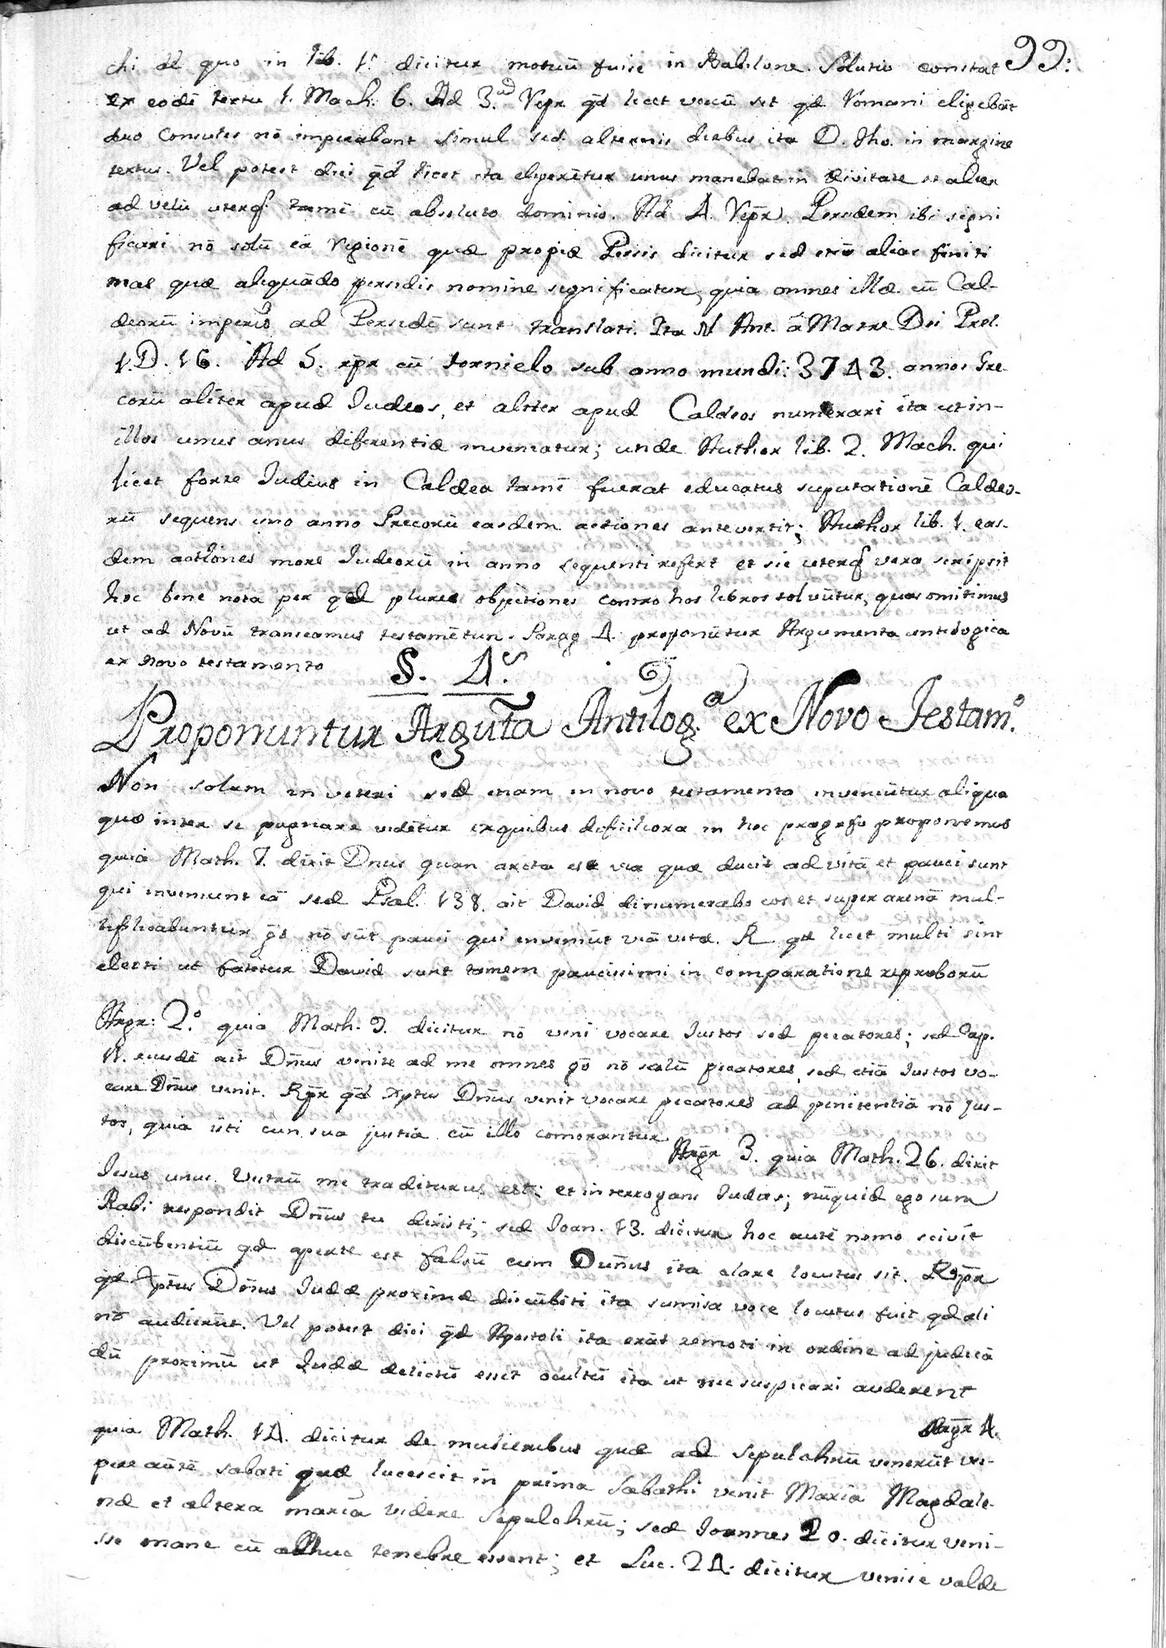 99.
chi de quo in lib. 1. dicitur mortuũ fuise in Babilone. Solutio constat
ex eodē textu 1. Mach. 6. Ad 3.um Respr qd licet verũ sit qd Romani eligebãt
duo Consules nõ imperabant simul sed alternis diebus ita D. Tho. in margine
textus. Vel potest dici qd licet ita eligerẽtur unus manebat in Civitate et alter
ad velũ uterq tamẽ cũ absoluto dominio. Ad 4. Respr. Persidem ibi signi
ficari nõ solũ eã Regionẽ quæ propiæ Persis dicitur sed etiã alias finiti
mas quæ aliquãdo persidis nomine significatur, quia omnes illæ cũ Cal-
deorũ imperio ad Persidẽ sunt translati. Ita N Ant. â Matre Dei Prel.
1. D. 16. Ad 5. rpr cũ tornielo sub anno mundi: 3743. annos Gre
corũ aliter apud Judeos, et aliter apud Caldeos numerari ita ut in-
illos unus anus diferentiæ inveniatur; unde Author lib. 2. Mach. qui
licet forte Judius in Caldea tamẽ fuerat educatus suputationẽ Caldeo-
rũ sequens uno anno Grecorũ easdem actiones antevertit; Author lib. 1. eas-
dem actiones more Judeorũ in anno sequenti refert et sic uterq vera scripsit
hoc bene nota per qd plures objetiones contra hos libros solvũtur, quas omitimus
ut ad Novũ transeamus testamẽtun. Parag 4. proponũtur Argumenta antilogica
ex novo testamento
§. 4.s
Proponuntur Arguta Antilog.a ex Novo Testam.o
Non solum in veteri sed etiam in novo testamento inveniũtur aliqua
quæ inter se pugnare vidẽtur exquibus dificiliora in hoc pragrafo proponemus
quia Math. 7. dixit Dnus quan arcta est via quæ ducit ad vitã et pauci sunt
qui inveniunt eã sed Psal. 138. ait David dinumerabo eos et super arenã mul-
tiplicabuntur go nõ sũt pauci qui inveniũt viã vitæ. R qd licet multi sint
electi ut fatetur David sunt tamem paucissimi in comparatione reproborũ
Argr: 2.o quia Math. 9. dicitur nõ veni vocare Justos sed pecatores; sed Cap.
11. eiusdẽ ait Dñus venite ad me omnes go nõ solũ pecatores, sed etiã Justos vo-
care Dñus venit. Rpr qd Xptus Dñus venit vocare pecatores ad penitentiã nõ Jus-
tos, quia isti cun sua justia cũ illo comorantur.
Argr 3. quia Math. 26. dixit
Jesus unus Vestrũ me traditurus est; et interrogans Judas; nũquid ego sum
Rabi respondit Dñus tu dixisti; sed Joan. 13. dicitur hoc autẽ nemo scivit
discũbentiũ qd aperte est falsũ cum Dũnus ita clare locutus sit. Respr
qd Xptus Dñus Judæ proxime discũbẽti ita sumisa voce locutus fuit qd ali
nõ audierũt. Vel potest dici qd Apostoli ita erãt remoti in ordine ad judicã
dũ proximũ ut Judæ delictũ esset ocultũ ita ut nec suspicari auderent
Argr 4.
quia Math. 14. dicitur de mulieribus quæ ad sepulchrũ venerũt ves-
pere autẽ sabati quæ lucescit in prima sabathi venit Maria Magdale-
næ et altera maria videre sepulchrũ; sed Joannes 20. dicitur veni-
sse mane cũ adhuc tenebre essent; et Luc. 24. dicitur venise valde